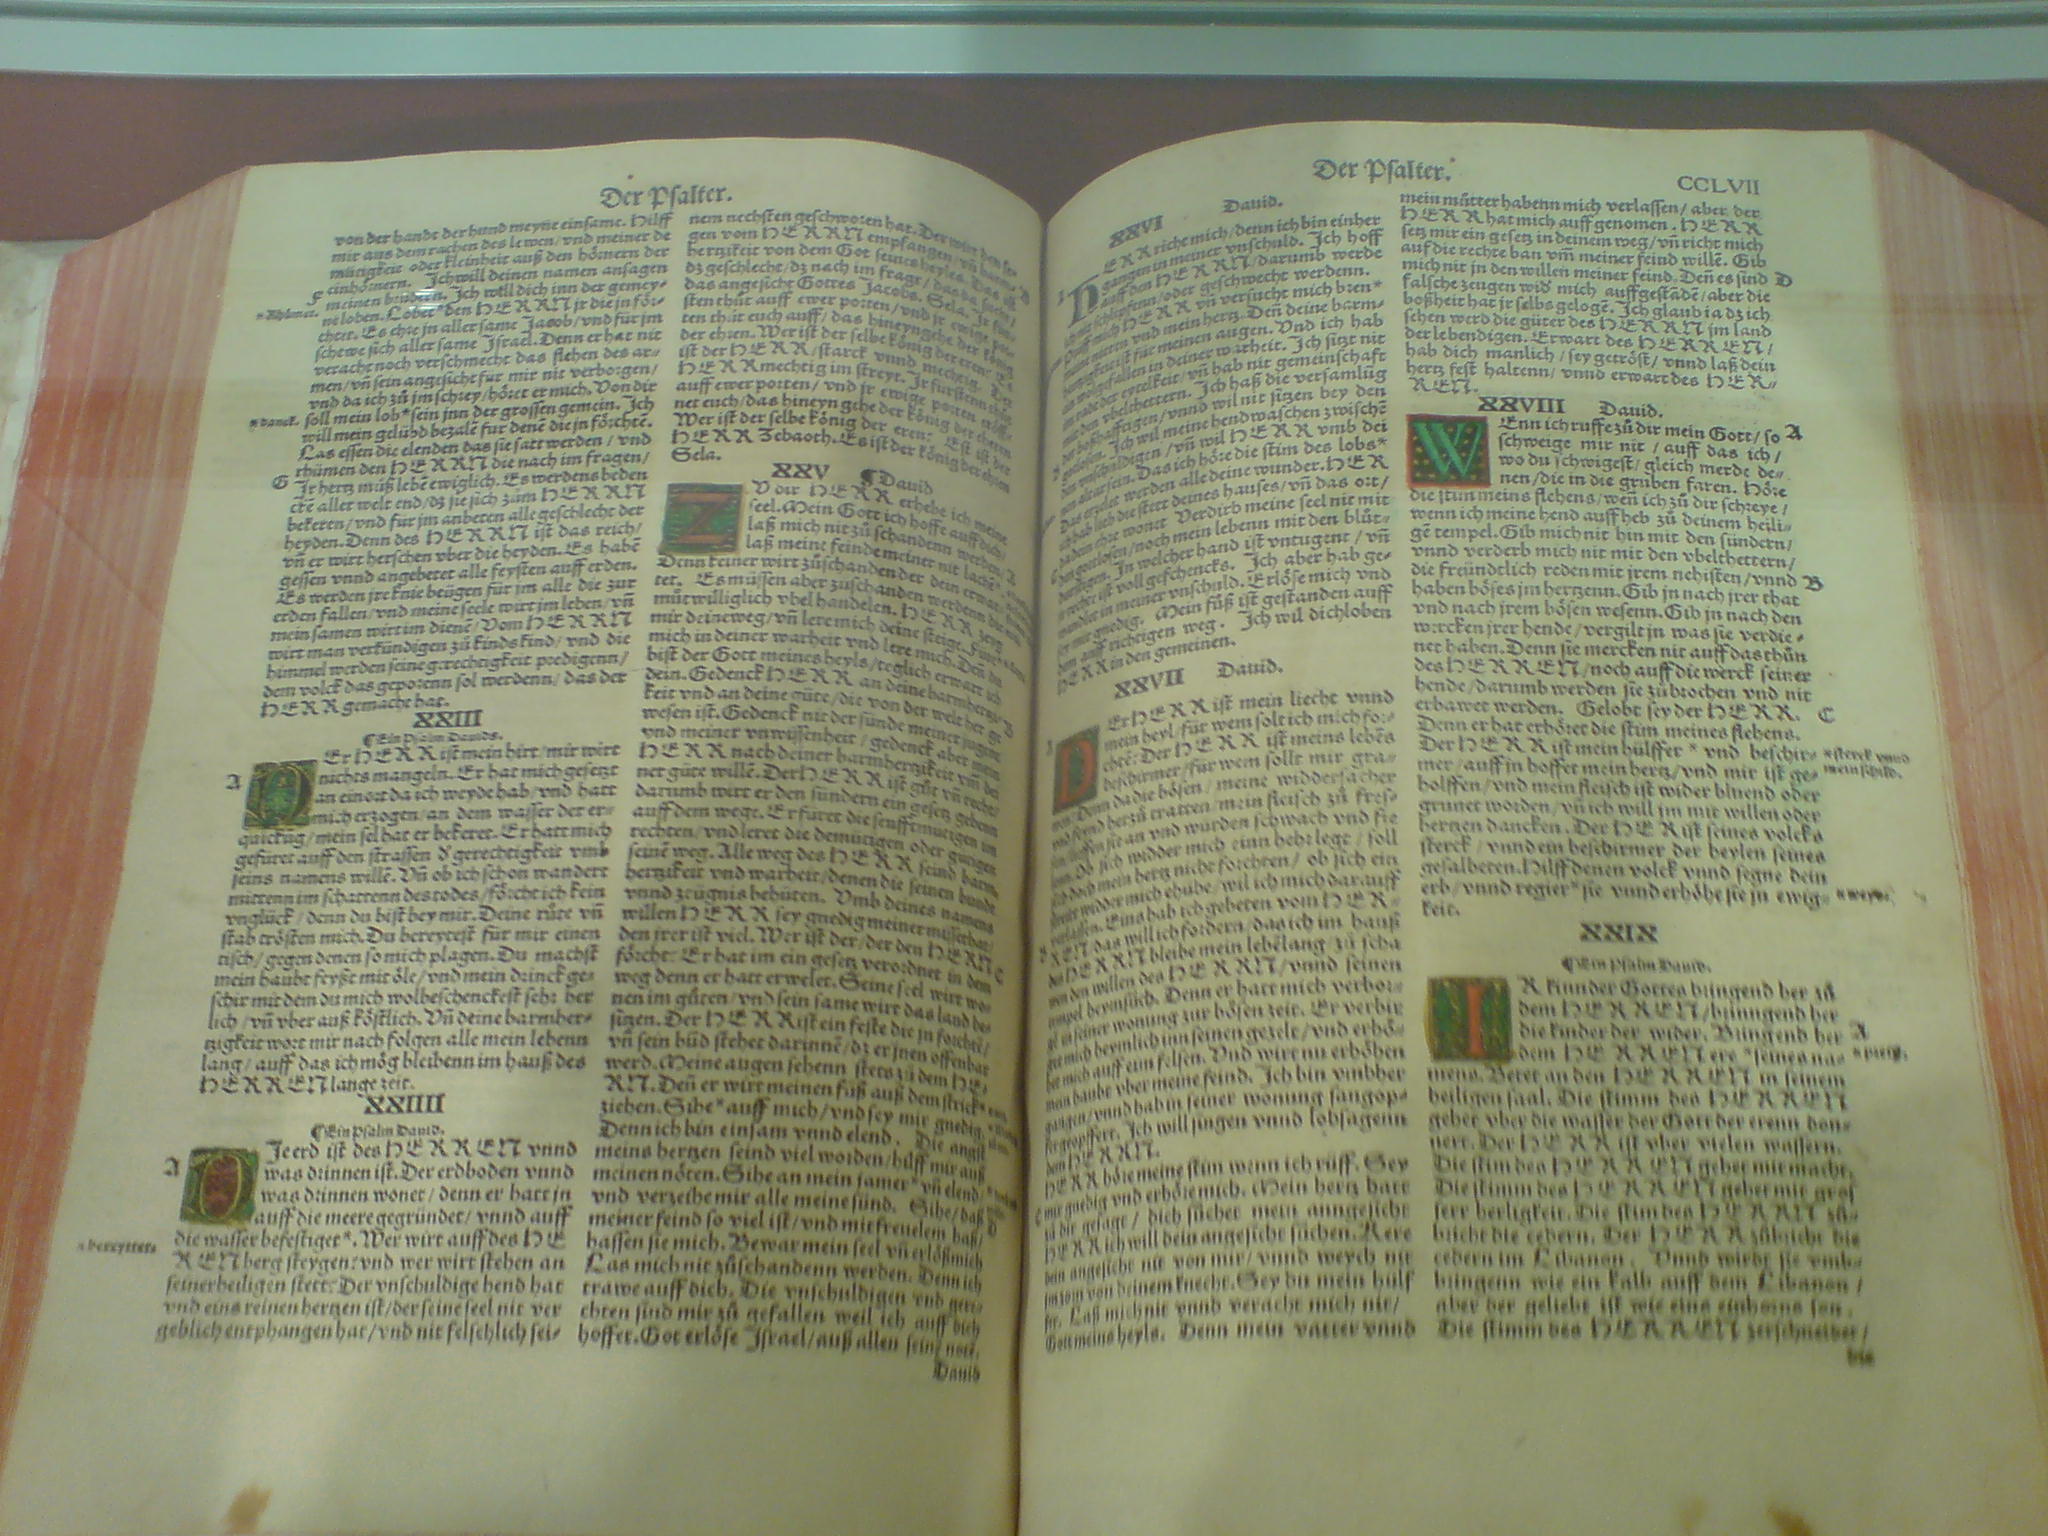 Der Psalter.
von der hande der hund meyne einsame. Hilff
mir aus dem rachen des lewen/vnd meiner de
mütigkeit oder kleinheit auß den hörnern der
einhörnern. Ich will deinen namen ansagen
F meinen brüdern. Ich will dich inn der gemey-
ne loben. Lobet* den HERRN jr die jn för-
chtet. Es ehre jn aller same Jacob/vnd für jm
schewe sich aller same Israel. Denn er hat nit
veracht noch verschmecht das flehen des ar-
men/vñ sein angesicht für mir nit verborgen/
vnd da ich zů jm schrey/höret er mich. Von dir
* danck. soll mein lob* sein jnn der grossen gemein. Ich
will mein gelübd bezalē für denē die jn förchtē.
Las essen die elenden das sie satt werden/vnd
rhümen den HERRN die nach im fragen/
G Ir hertz můß lebē ewiglich. Es werdens beden
ckē aller welt end/dz sie sich zům HERRN
bekeren/vnd für jm anbeten alle geschlecht der
heyden. Denn des HERRN ist das reich/
vñ er wirt herschen vber die heyden. Es habē
gessen vnnd angebetet alle feysten auff erden.
Es werden jre knie beügen für jm alle die zur
erden fallen/vnd meine seele wirt jm leben/vñ
mein samen wirt im dienē/Vom HERRN
wirt man verkündigen zů kinds kind/vnd die
himmel werden seine gerechtigkeit predigenn/
dem volck das geporenn sol werdenn/das der
HERR gemacht hat.
XXIII
¶Ein Psalm Dauids.
A DEr HERR ist mein hirt/mir wirt
nichts mangeln. Er hat mich gesetzt
an ein ort da ich weyde hab/vnd hatt
mich erzogen/an dem wasser der er-
quickūg/mein sel hat er bekeret. Er hatt mich
gefüret auff den strassen d' gerechtigkeit vmb
seins namens willē. Vñ ob ich schon wandert
mittenn im schattenn des todes/förcht ich kein
vnglück/denn du bist bey mir. Deine růte vñ
stab trösten mich. Du bereytest für mir einen
tisch/gegen denen so mich plagen. Du machst
mein haubt feyßt mit öle/vnd mein drinck ge-
schir mit dem du mich wolbeschenckest sehr her
lich/vñ vber auß köstlich. Vñ deine barmher-
tzigkeit wort mir nach folgen alle mein lebenn
lang/auff das ich mög bleibenn im hauß des
HERREN lange zeit.
XXIIII
¶Ein Psalm Dauid.
A DIe erd ist des HERREN vnnd
was drinnen ist. Der erdboden vnnd
was drinnen wonet/denn er hatt jn
auff die meere gegründet/vnnd auff
die wasser befestiget*. Wer wirt auff des HE
REN berg steygen: vnd wer wirt stehen an
seiner heiligen stett: Der vnschuldige hend hat
vnd eins reinen hertzen ist/der seine seel nit ver
geblich entphangen hat/vnd nit felschlich sei-
nem nechsten geschworen hat. Der wirt den se-
gen vom HERRN empfangen/vñ barm-
hertzikeit von dem Got seines heyls. Das ist
dz geschlecht/dz nach im fragt/das da sucht/
das angesicht Gottes Jacobs. Sela. Ir für-
sten thüt auff ewer porten/vnd jr ewige por-
ten thüt euch auff/das hineyn gehe der könig
der ehren. Wer ist der selbe könig der eren: Es
ist der HERR/starck vnnd mechtig. Der
HERR mechtig im streyt. Ir fürsten thüt
auff ewer porten/vnd jr ewige porten eröff-
net euch/das hineyn gehe der könig der eheren
Wer ist der selbe könig der eren: Est ist der
HERR Zebaoth. Es ist der könig der ehren
Sela.
XXV ¶Dauid
ZV dir HERR erhebe ich meine
seel. Mein Gott ich hoffe auff dich/
laß mich nit zů schandenn werden/
laß meine feinde meiner nit lachē*.
Denn keiner wirt zůschanden der dein erwar-
tet. Es müssen aber zůschanden werdenn die
můtwilliglich vbel handelen. HERR zeyg
mir deine weg/vñ lere mich deine stige. Füre*
mich in deiner warheit vnd lere mich. Deñ du
bist der Gott meines heyls/teglich erwart ich
dein. Gedenck HERR an deine barmhertzi-
keit vnd an deine güte/die von der welt her ge
wesen ist. Gedenck nit der sünde meiner jugent
vnd meiner vnwissenheit/gedenck aber mein
HERR nach deiner barmhertzikeit vnñ dei
ner güte willē. Der HERR ist gůt vñ recht/
darumb wirt er den sündern ein gesetz gebenn
auff dem wege. Er füret die senfftmuetigen im
rechten/vnd leret die demütigen oder gütigen
seinē weg. Alle weg des HERR seind barm
hertzikeit vnd warheit/denen die seinen bundt
vnnd zeügnis behüten. Vmb deines namens
willen HERR sey gnedig meiner missethat/
den jrer ist viel. Wer ist der/der den HERN C
förcht: Er hat im ein gesetz verordnet in dem
weg denn er hatt erwelet. Seine seel wirt wo-
nen im gůten/vnd sein same wirt das land be-
sitzen. Der HERR ist ein feste die jn förchtē/
vñ sein bůd stehet darinnē/dz er jnen offenbar
werd. Meine augen sehenn stets zů dem HE-
RN. Deñ er wirt meinen fůß auß dem strick*
ziehen. Sihe* auff mich/vnd sey mir gnedig.
Denn ich bin einsam vnnd elend. Die angst
meins hertzen seind viel worden/hilff mir auß
meinen nöten. Sihe an mein jamer* vñ elend/
vnd verzeihe mir alle meine sünd. Sihe/daß D
meiner feind so viel ist/vnd mit freuelem haß/
hassen sie mich. Bewar mein seel vñ erlöß mich
Las mich nit zůschandenn werden. Denn ich
trawe auff dich. Die vnschuldigen vnd gere-
chten sind mir zů gefallen weil ich auff dich
hoffet. Got erlöse Israel/auß allen seinē nötē.
Dauid
Der Psalter.
CCLVII
XXVI Dauid.
HERR richt mich/denn ich bin einher
gangen in meiner vnschuld. Ich hoff
auff den HERRN/darumb werde
ich nit schlipfenn/oder geschwecht werdenn.
Prüff mich HERR vñ versucht mich bren*
meine nieren vnd mein hertz. Deñ deine barm-
hertzigkeit ist für meinen augen. Vnd ich hab
ein wolgefallen in deiner warheit. Ich sitz nit
im radt der eytelkeit/vñ hab nit gemeinschafft
mit den vbelthettern. Ich haß die versamlūg
der boßhafftigen/vnnd wil nit sitzen bey den
gotlosen. Ich wil meine hend waschen zwischē
den vnschuldigen/vñ wil HERR vmb dei
nen altar sein. Das ich höre die stim des lobs*
Das erzelet werden alle deine wunder. HER
ich hab lieb die stett deines hauses/vñ das ort/
da dein ehre wonet Verdirb meine seel nit mit
den gottlosen/noch mein lebenn mit den blůt-
dürstigen. In welcher hand ist vntugent/vñ
jr rechte ist voll geschencks. Ich aber hab ge-
wandlet in meiner vnschuld. Erlöse mich vnd
sey mir gnedig. Mein fůß ist gestanden auff
dem auff richtigen weg. Ich wil dich loben
HERR in den gemeinen.
XXVII Dauid.
DEr HERR ist mein liecht vnnd
mein heyl/für wem solt ich mich för-
chtē: Der HERR ist meins lebēs
beschirmer/für wem sollt mir gra-
wen: Denn da die bösen/meine widdersacher
vnd feynd herzů tratten/mein fleisch zů fres-
sen/lieffen sie an vnd wurden schwach vnd fie
lenn. Ob sich widder mich einn hehr legt/soll
sich doch mein hertz nicht förchten/ob sich ein
streitt widder mich ehübe/wil ich mich darauff
verlassen. Eins hab ich gebeten vom HER-
REN das will ich fordern/das ich im hauß
des HERRN bleibe mein lebēlang/zů scha
wen den willen des HERRN/vnnd seinen
tempel beymsůch. Denn er hatt mich verbor-
gē in seiner wonung zur bösen zeit. Er verbir
get mich heymlich inn seinen gezelt/vnd erhö-
het mich auff eim felsen. Vnd wirt nu erhöhen
man haubt vber meine feind. Ich bin vmbher
gangen/vnnd hab in seiner wonung langop-
fer geopffert. Ich will singen vnnd lobsagenn
dem HERRN.
HERR höre meine stim wenn ich rüff. Sey
mir gnedig vnd erhöre mich. Mein hertz hatt
zů dir gesagt/dich sůchet mein anngesicht
HERR ich will dein angesicht sůchen. Kere
dein angesicht nit von mir/vnnd weych nit
jm zorn von deinem knecht. Sey du mein hülf
fer. Laß mich nit vnnd veracht mich nit/
Gott meins heyls. Denn mein vatter vnnd
mein můtter habenn mich verlassen/aber der
HERR hat mich auff genomen. HERR
setz mir ein gesetz in deinem weg/vñ richt mich
auf die rechte ban vm̄ meiner feind willē. Gib
mich nit in den willen meiner feind. Deñ es sind D
falsche zeugen wid' mich auffgestādē/aber die
boßheit hat jr selbs gelogē. Ich glaub ia dz ich
sehen werd die güter des HERREN jm land
der lebendigen. Erwart des HERREN/
hab dich manlich/sey getröst/vnnd laß dein
hertz fest haltenn/vnnd erwart des HER-
REN.
XXVIII Dauid.
WEnn ich ruffe zů dir mein Gott/so A
schweige mir nit/auff das ich/
wo du schwigest/gleich werde de-
nen/die in die grůben faren. Höre
die stim meins flehens/weñ ich zů dir schreye/
wenn ich meine hend auff heb zů deinem heili-
gē tempel. Gib mich nit hin mit den sündern/
vnnd verderb mich nit mit den vbelthettern/
die freündtlich reden mit jrem nehisten/vnnd B
haben böses im hertzenn. Gib jn nach jrer that
vnd nach jrem bösen wesenn. Gib jn nach den
wercken jrer hende/vergilt jn was sie verdie-
net haben. Denn sie mercken nit auff das thůn
des HERREN/noch auff die werck seiner
hende/darumb werden sie zůbrochen vnd nit
erbawet werden. Gelobt sey der HERR. C
Denn er hat erhöret die stim meines flehens.
Der HERR ist mein hülffer* vnd beschir- * sterck vnnd
mer/auff jn hoffet mein hertz/vnd mir ist ge- mein schild.
holffen/vnd mein fleisch ist wider blüend oder
grünet worden/vñ ich will jm mit willen oder
hertzen dancken. Der HERR ist seines volcks
sterck/vnnd ein beschirmer der heylen seines
gesalbeten. Hilff denen volck vnnd segne dein
erb/vnnd regier* sie vnnd erhöhe sie jn ewig-
keit.
XXIX
¶Ein Psalm Dauid.
IR kinnder Gottes bringend her zů
dem HERREN/brinngend her
die kinder der wider. Bringend her A
dem HERREN ere* seines na-
mens. Betet an den HERREN in seinem
heiligen saal. Die stimm des HERREN
gehet vber die wasser der Gott der erenn don-
nert. Der HERR ist vber vielen wassern.
Die stim des HERREN gehet mit macht.
Die stimm des HERREN gehet mit gros
ser herligkeit. Die stim des HERREN zů-
bricht die cedern. Der HERR zůbricht die
cedern im Libanon. Vnnd wirdt sie vmb-
bringenn wie ein kalb auff dem Libanon/
aber der geliebt ist wie eins einhorns son.
Die stimm des HERREN zerschneidet/
die